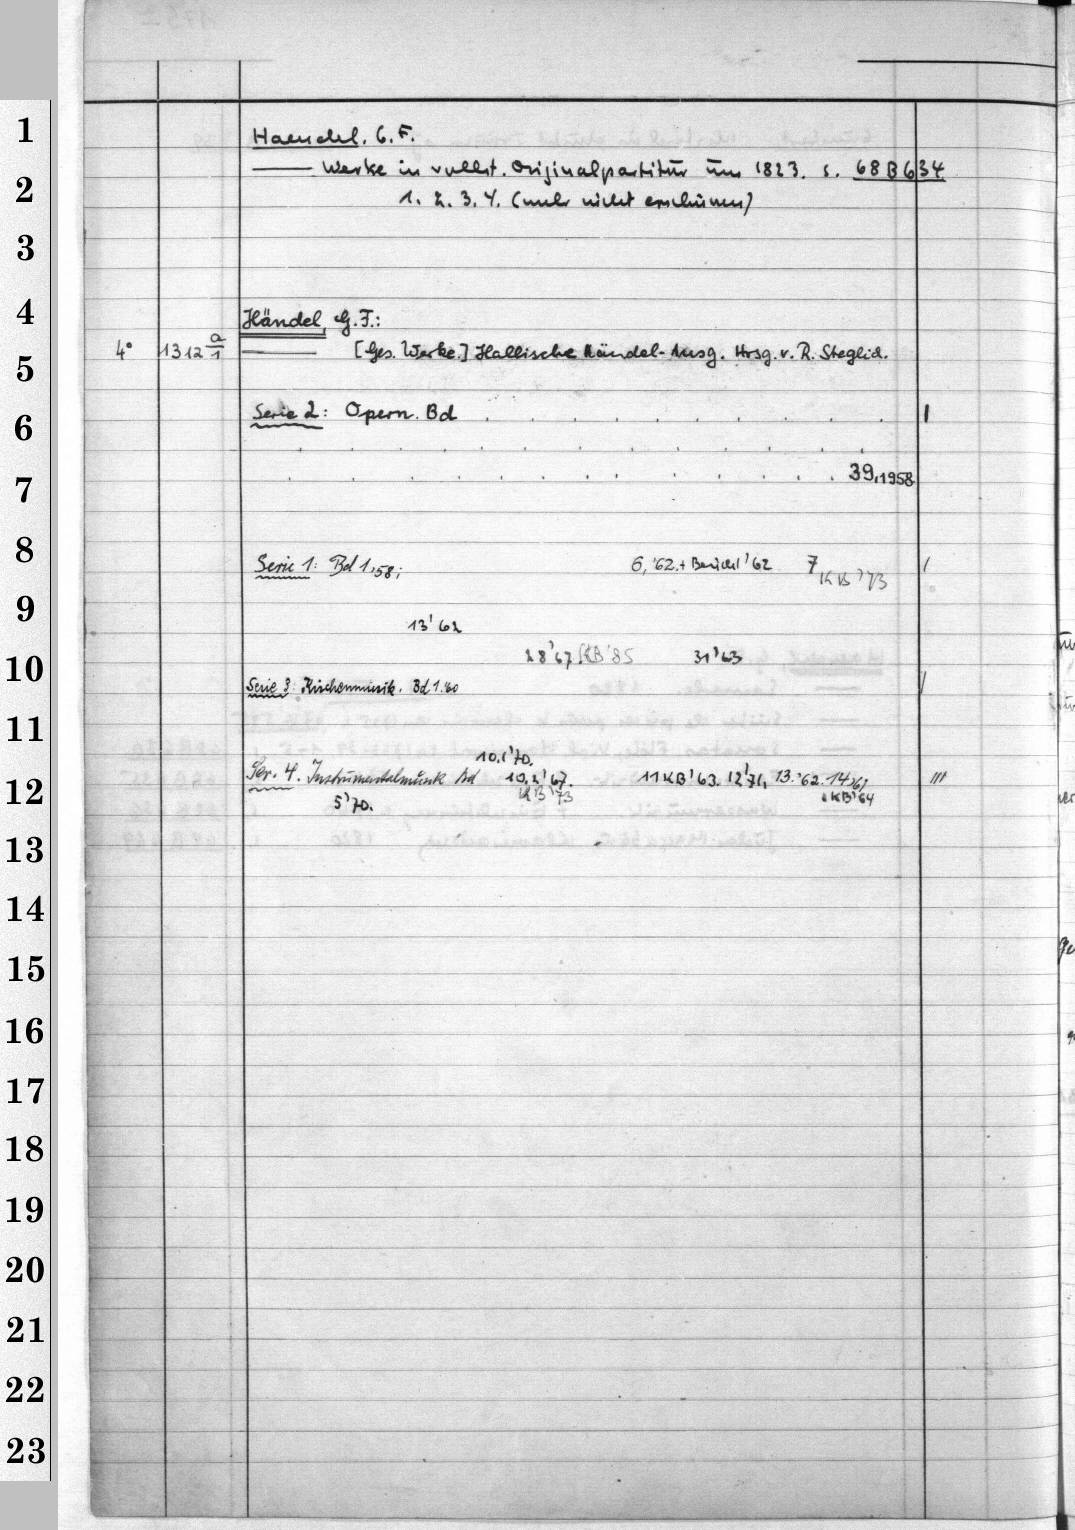 1
Haendel. G. F.
—— Werke in vollst. Originalpartitur um 1823. s. 68 B 634
2
1. 2. 3. 4. (mehr nicht erschienen)
3
4
Händel, G. F.:
4° 1312 a/1 —— [Ges. Werke.] Hallische Händel-Ausg. Hrsg. v. R. Steglich.
5
6
Serie 2: Opern. Bd . . . . . . . . . . . 1
. . . . . . . . . . .
7
. . . . . . . . . . . 39, 1958
8
Serie 1: Bd 1, 58; 6, '62. + Bericht '62 7 KB '73 /
9
13 '62
10
28 '67. KB '85 31 '63
Serie 3: Kirchenmusik. Bd 1. 60 /
11
10.1 '70.
12
Ser. 4. Instrumentalmusik Bd 10.2 '67. 11 KB '63. 12 '71, 13. '62. 14 ///
KB '73 KB '64
5 '70.
13
14
15
16
17
18
19
20
21
22
23